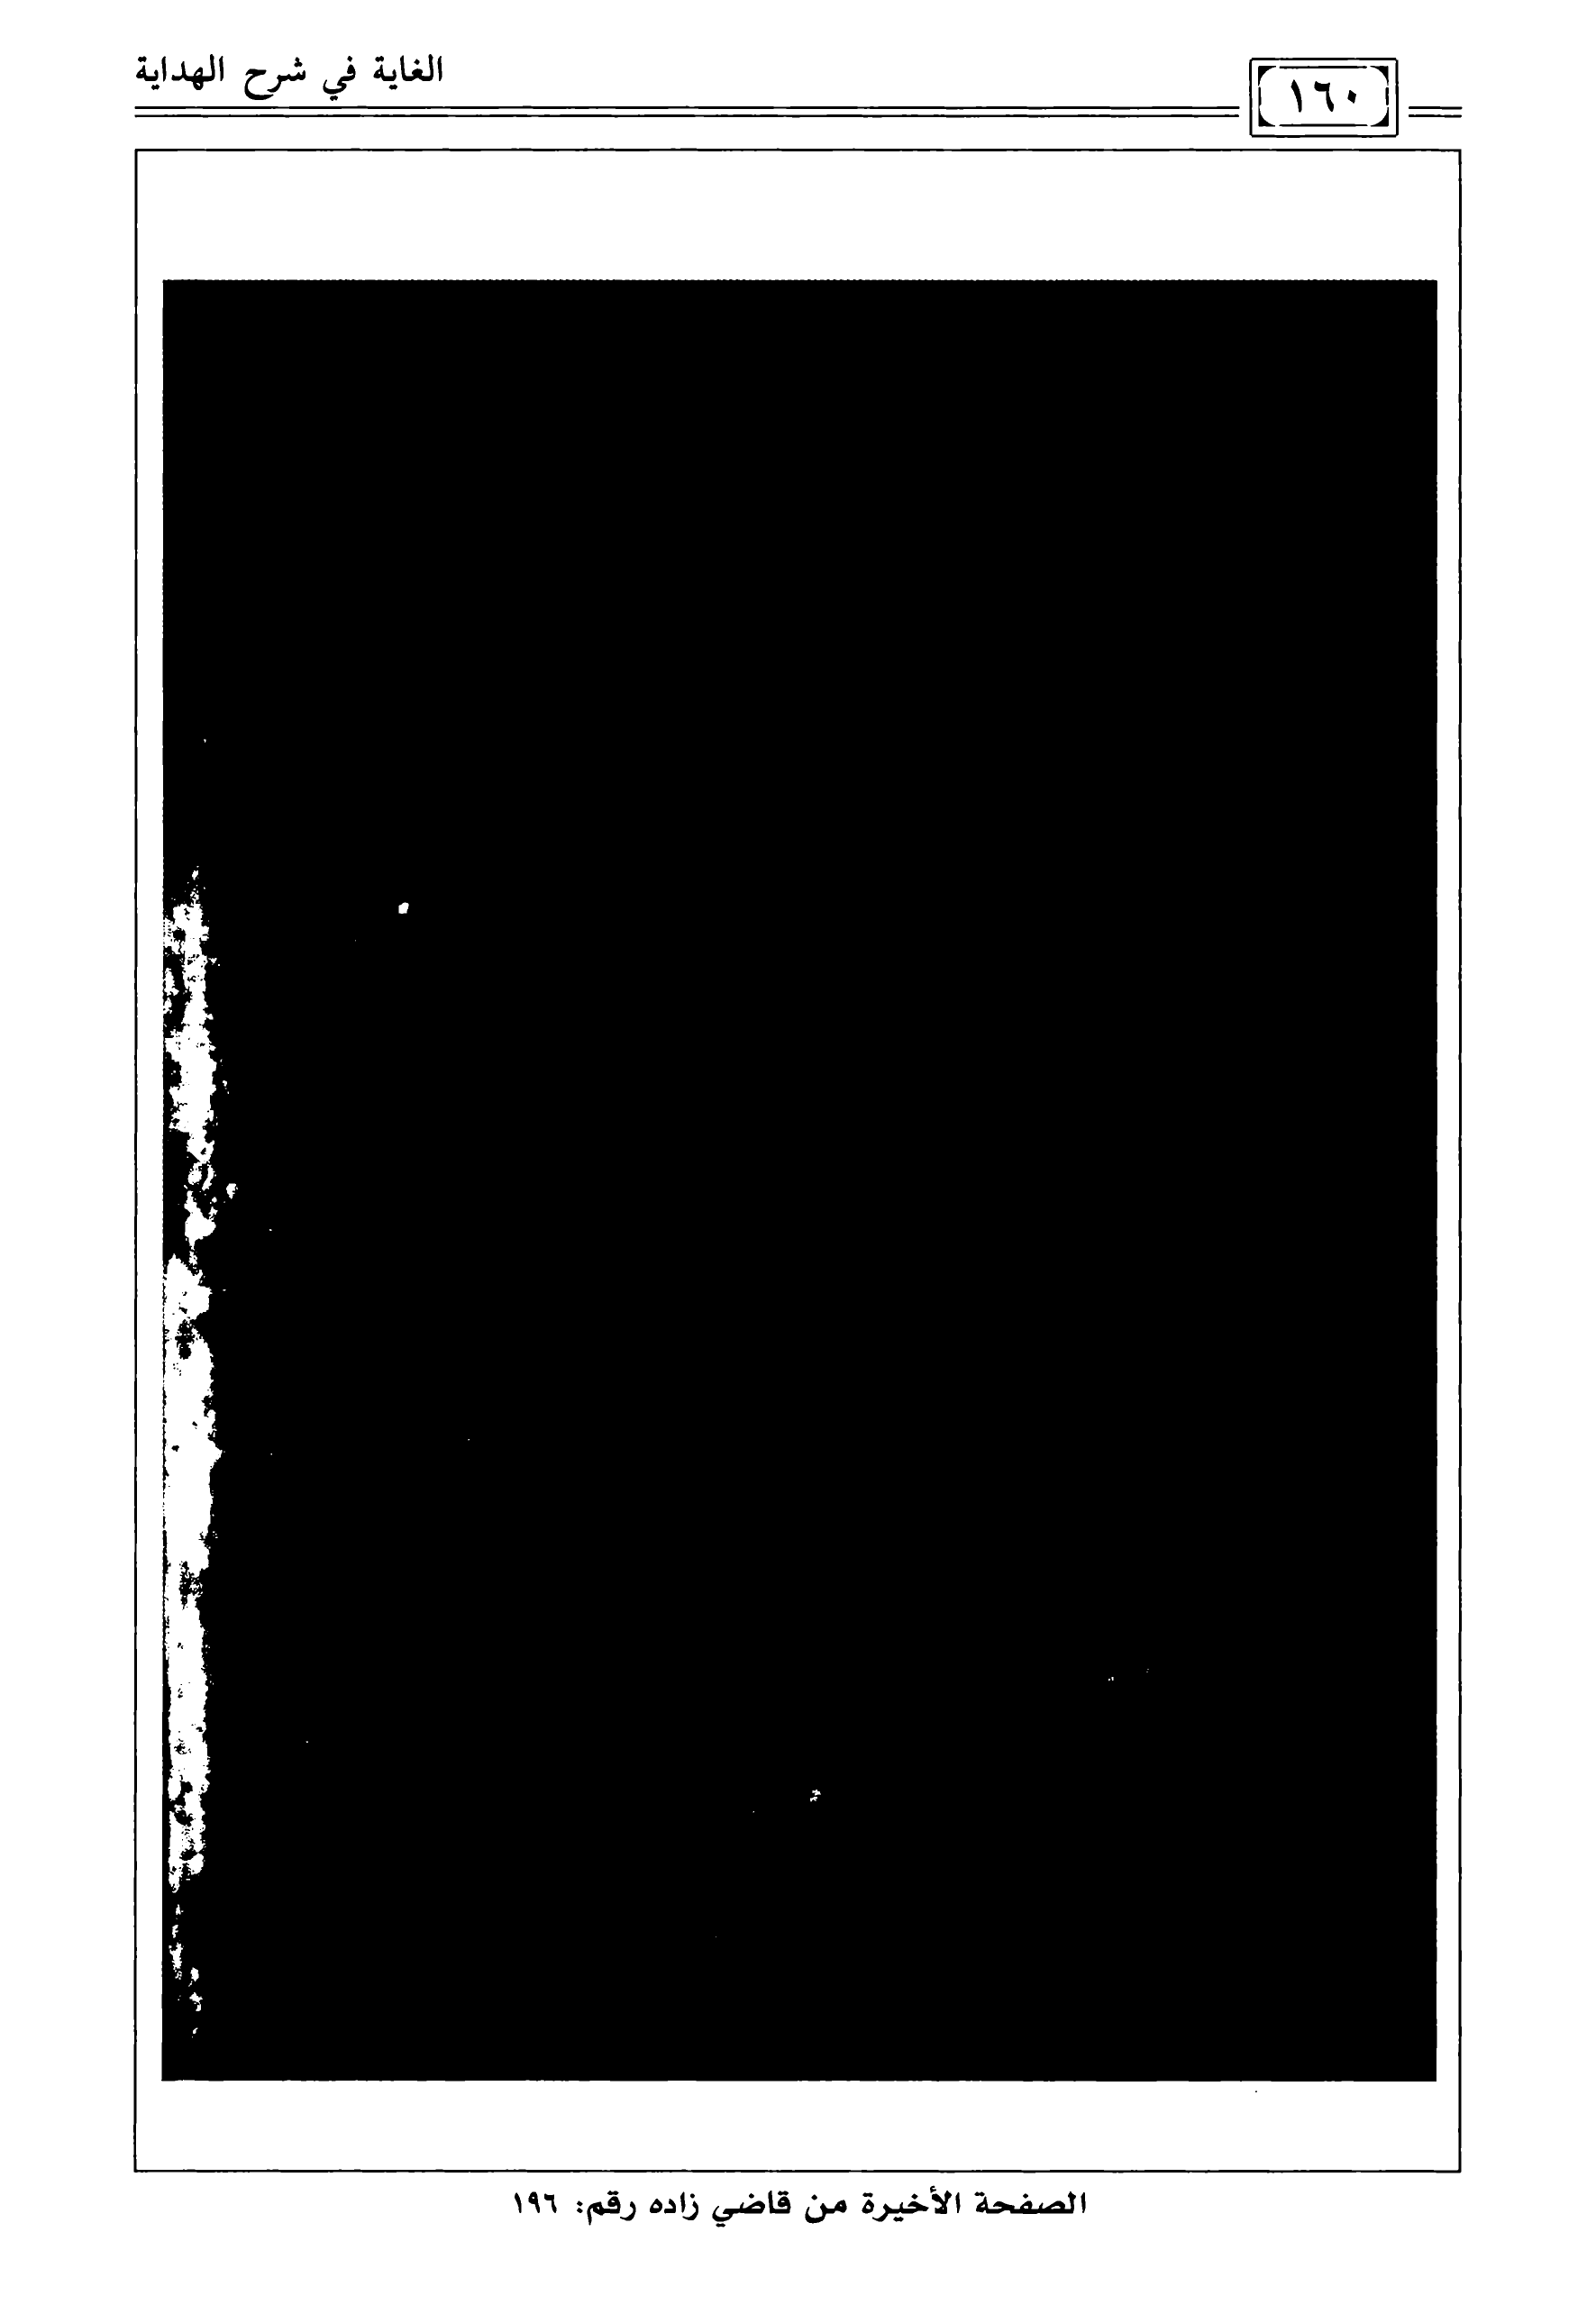 ١٦٠
الغاية في شرح الهداية
الصفحة الأخيرة من قاضي زاده رقم: ١٩٦